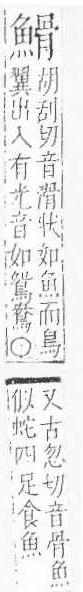 䱻
胡刮切音滑狀如魚而鳥
翼出入有光音如鴛鴦○
又古忽切音骨魚
似蛇四足食魚